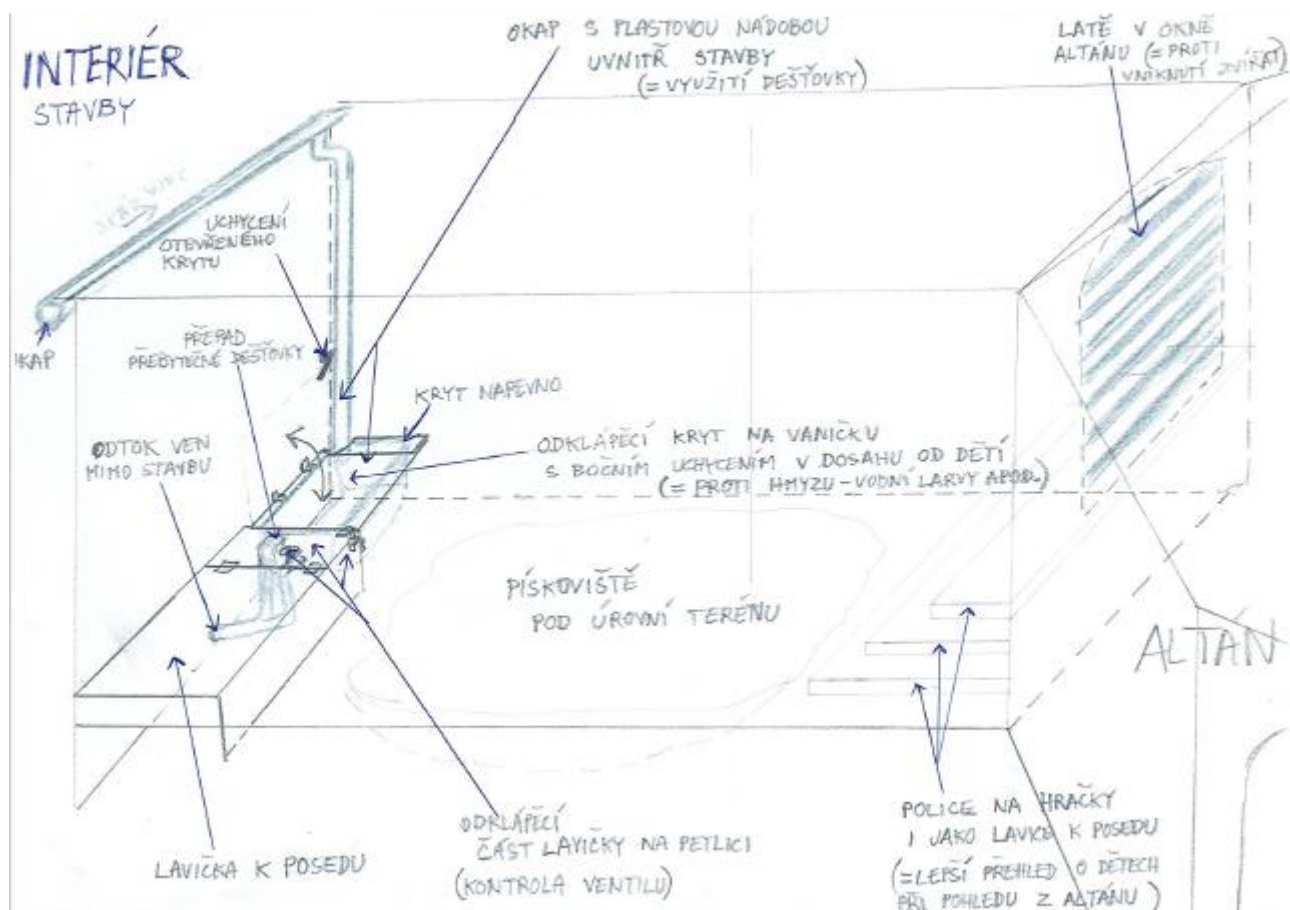 INTERIÉR
STAVBY
OKAP S PLASTOVOU NÁDOBOU
UVNITŘ STAVBY
(= VYUŽITÍ DEŠŤOVKY)
LATĚ V OKNĚ
ALTÁNU (= PROTI
VNIKNUTÍ ZVÍŘAT)
UCHYCENÍ
OTEVŘENÉHO
KRYTU
PŘEPAD
PŘEBYTEČNÉ DEŠŤOVKY
KRYT NAPEVNO
ODTOK VEN
MIMO STAVBU
ODKLÁPĚCÍ KRYT NA VANIČKU
S BOČNÍM UCHYCENÍM V DOSAHU OD DĚTÍ
(= PROTI HMYZU - VODNÍ LARVY APOD.)
PÍSKOVIŠTĚ
POD ÚROVNÍ TERÉNU
ALTAN
LAVIČKA K POSEDU
ODKLÁPĚCÍ
ČÁST LAVIČKY NA PETLICI
(KONTROLA VENTILU)
POLICE NA HRAČKY
I JAKO LAVICE K POSEDU
(= LEPŠÍ PŘEHLED O DĚTECH
PŘI POHLEDU Z ALTÁNU)